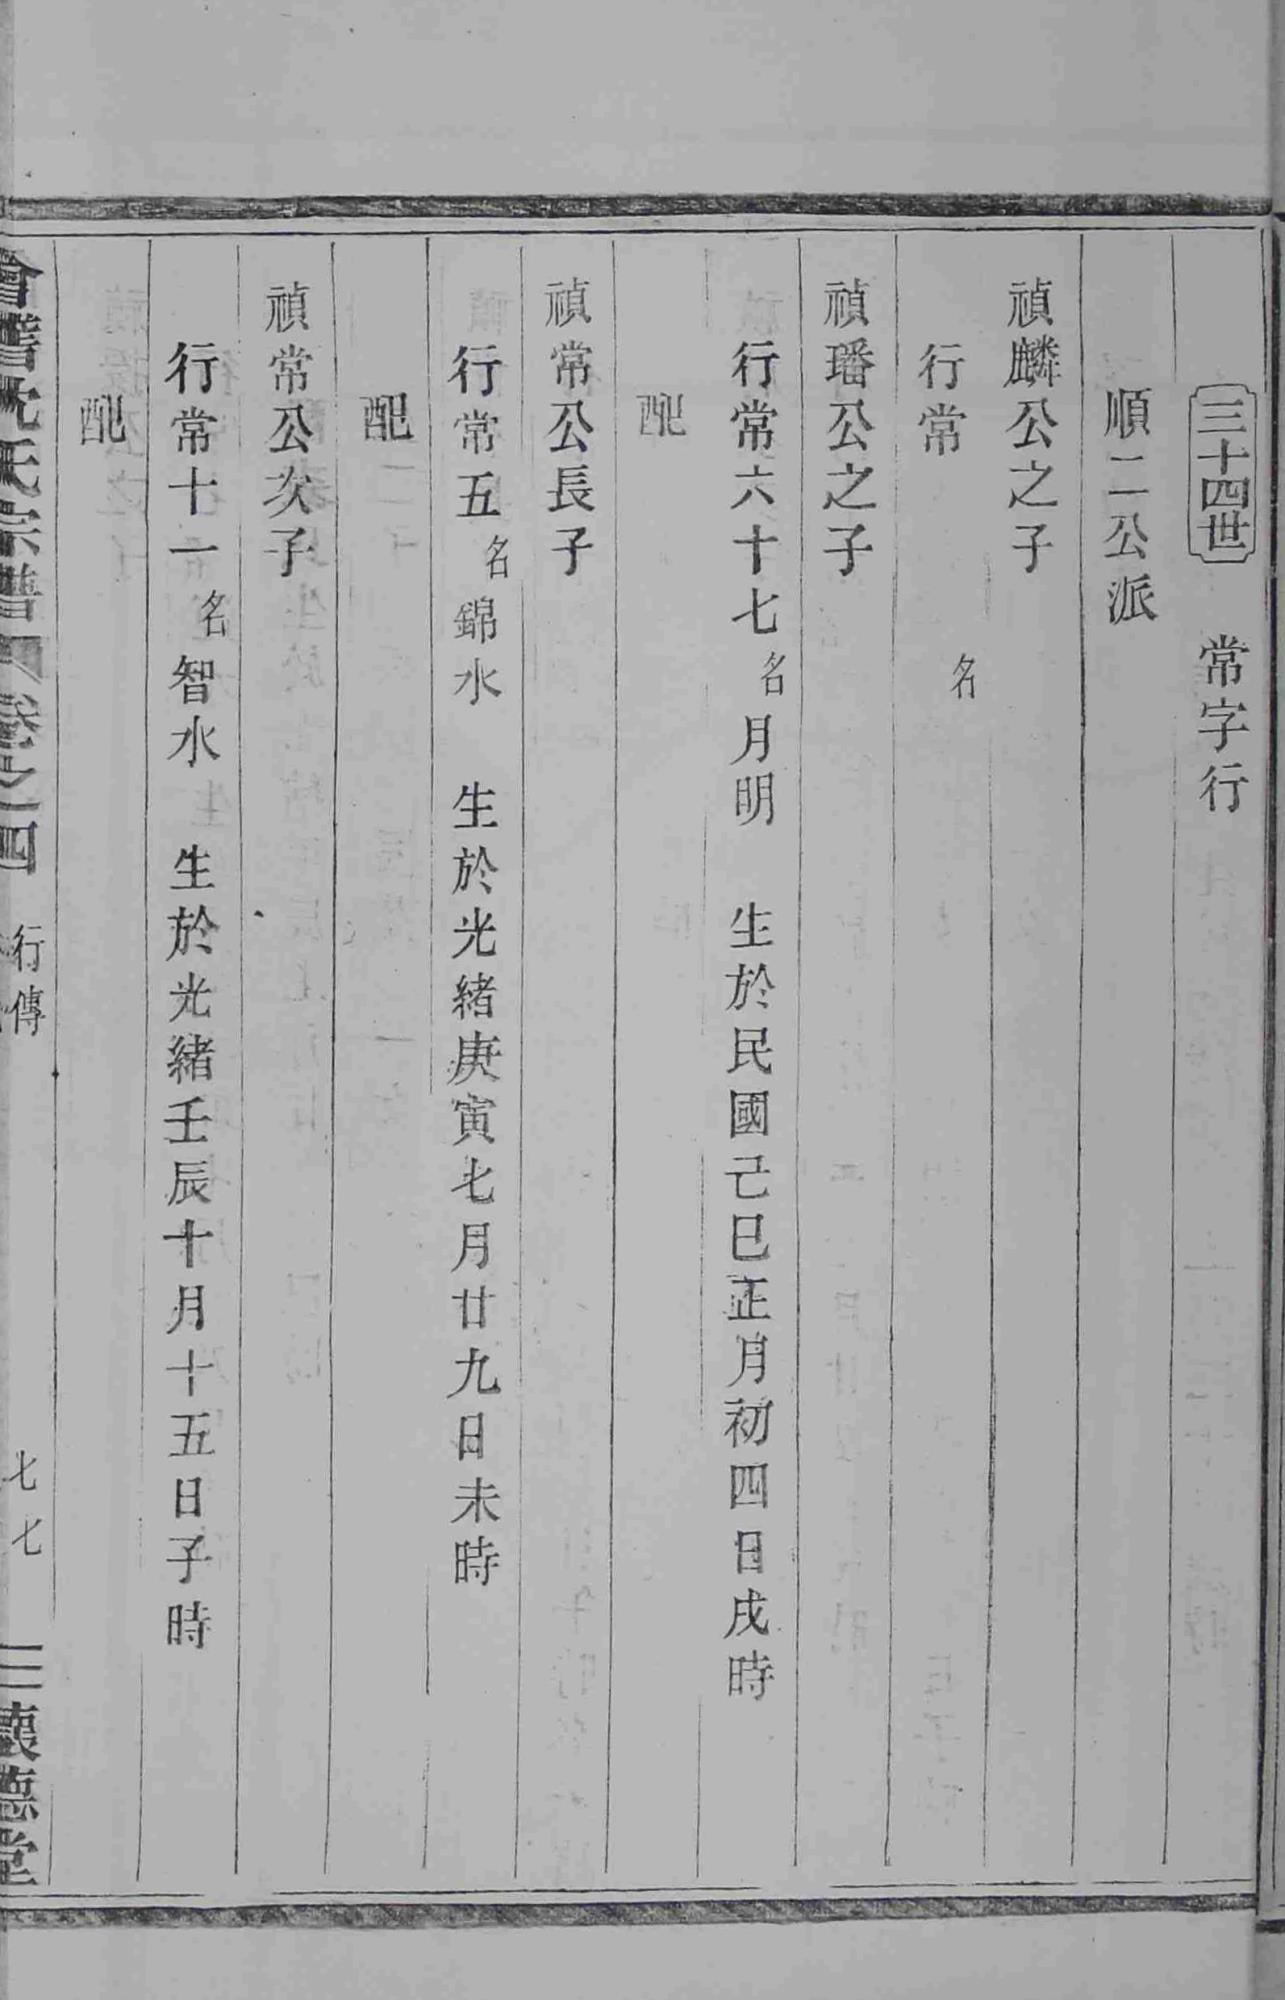 三十四世 常字行
順二公派
禎麟公之子
行常 名
禎璠公之子
行常六十七名月明 生於民國己巳正月初四日戌時
配
禎常公長子
行常五名錦水 生於光緒庚寅七月廿九日未時
配
禎常公次子
行常十一名智水 生於光緒壬辰十月十五日子時
配
會稽沈氏宗譜 卷之四 行傳 七七 懷德堂